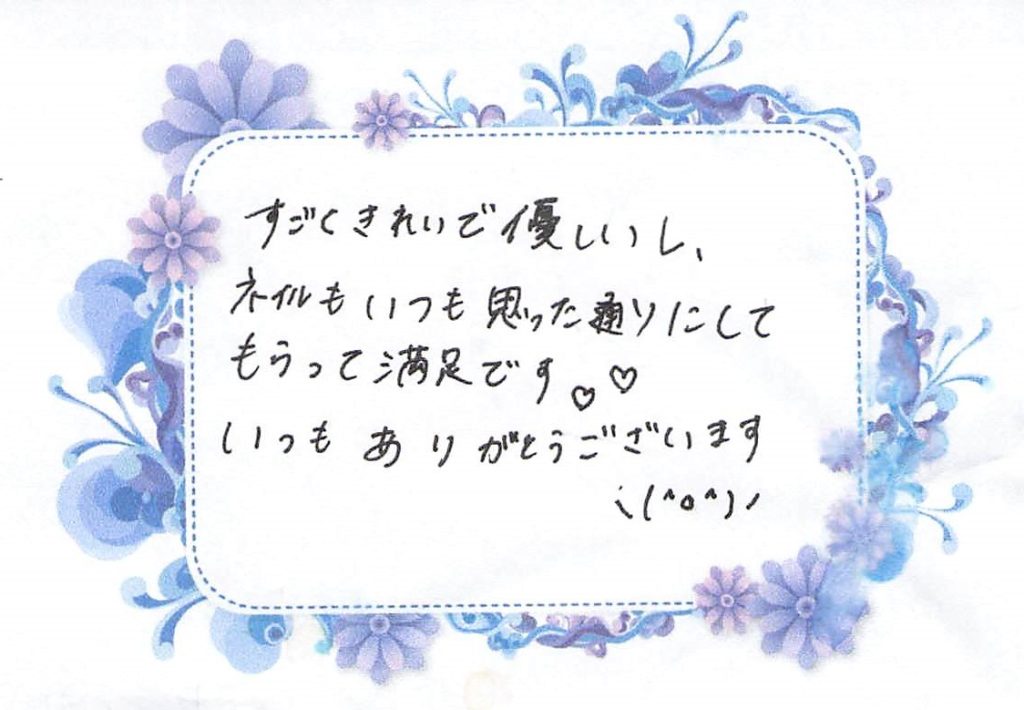 すごくきれいで優しいし、
ネイルもいつも思った通りにして
もらって満足です。♡♡
いつもありがとうございます
\(^o^)/